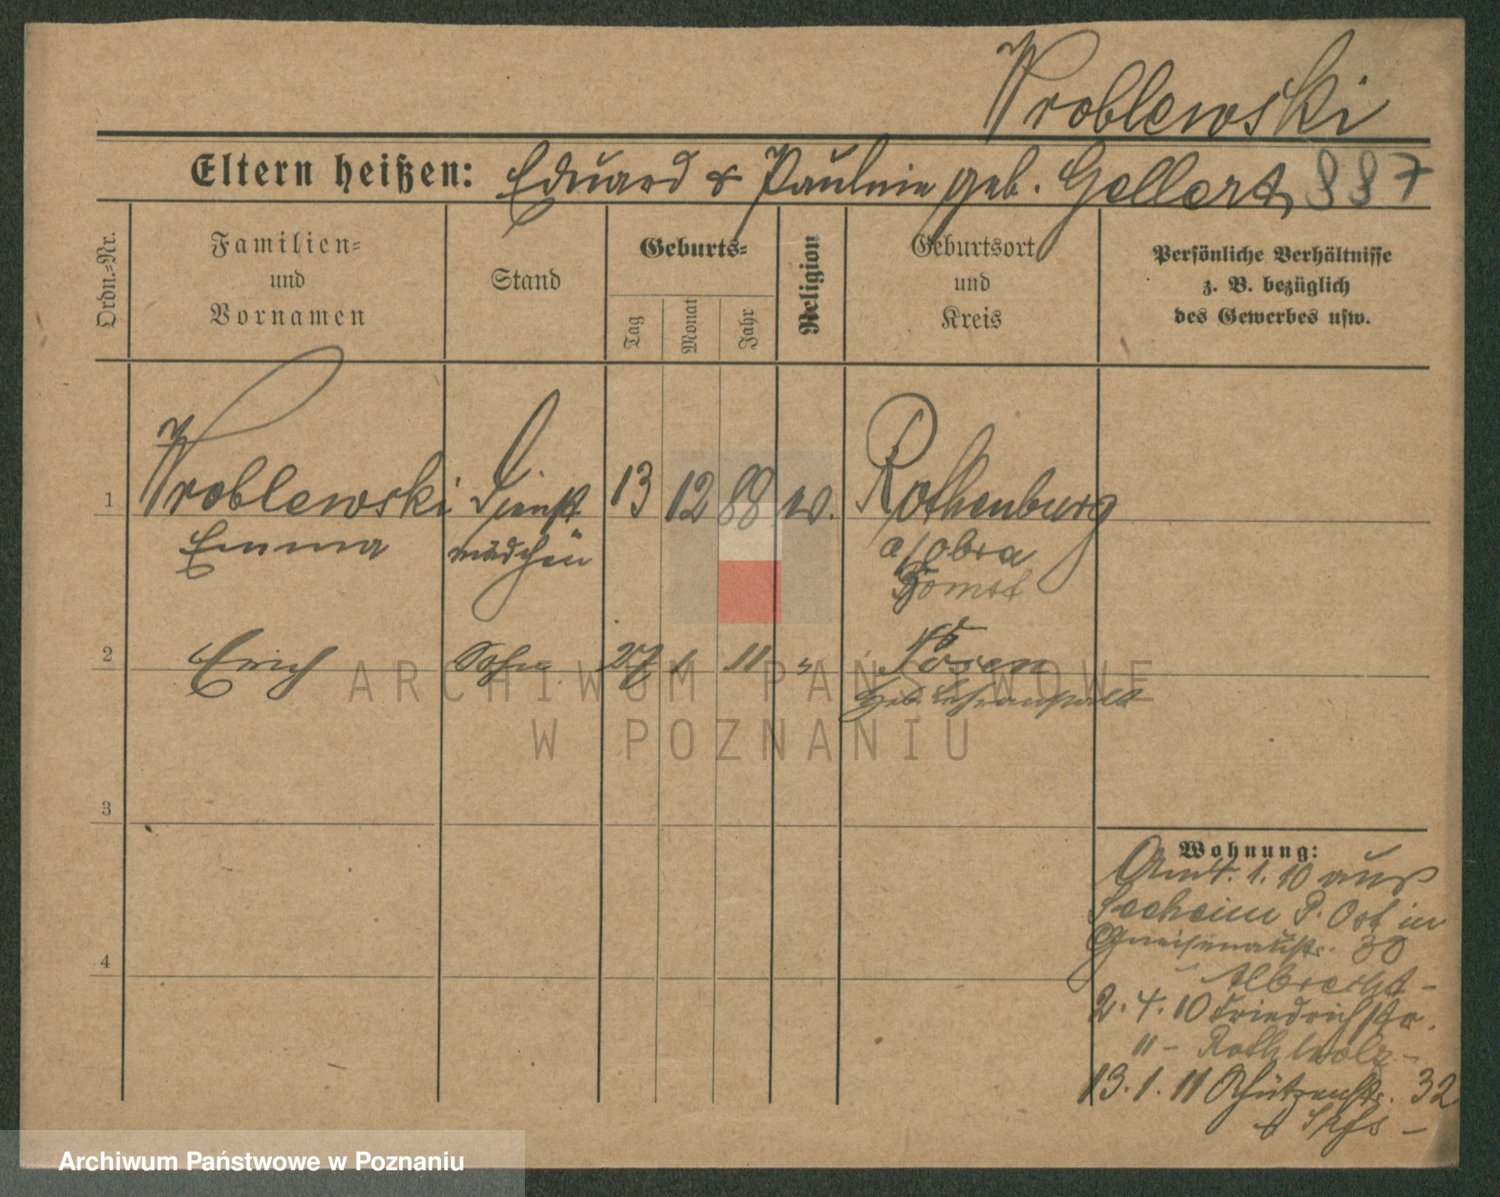 Wroblewski
Eltern heißen: Eduard & Paulnie geb. Gellert 887
Ordn.-Nr.
Familien-
und
Vornamen
Stand
Geburts-
Tag
Monat
Jahr
Religion
Geburtsort
und
Kreis
Persönliche Verhältnisse
z. B. bezüglich
des Gewerbes usw.
1 Wroblewski Dienst 13 12 88 Rothenburg
Emma mädchen a/obra
Bomst
2 Erich Sohn 27 1 11 " Posen
3
4
Wohnung:
1. 10 aus
P. Ost in
Gneisenaustr. 30
Albrecht-
2. 4. 10 Friedrichstr.
" -
13. 1. 11 Schützenstr. 32
ARCHIWUM PAŃSTWOWE
W POZNANIU
Archiwum Państwowe w Poznaniu